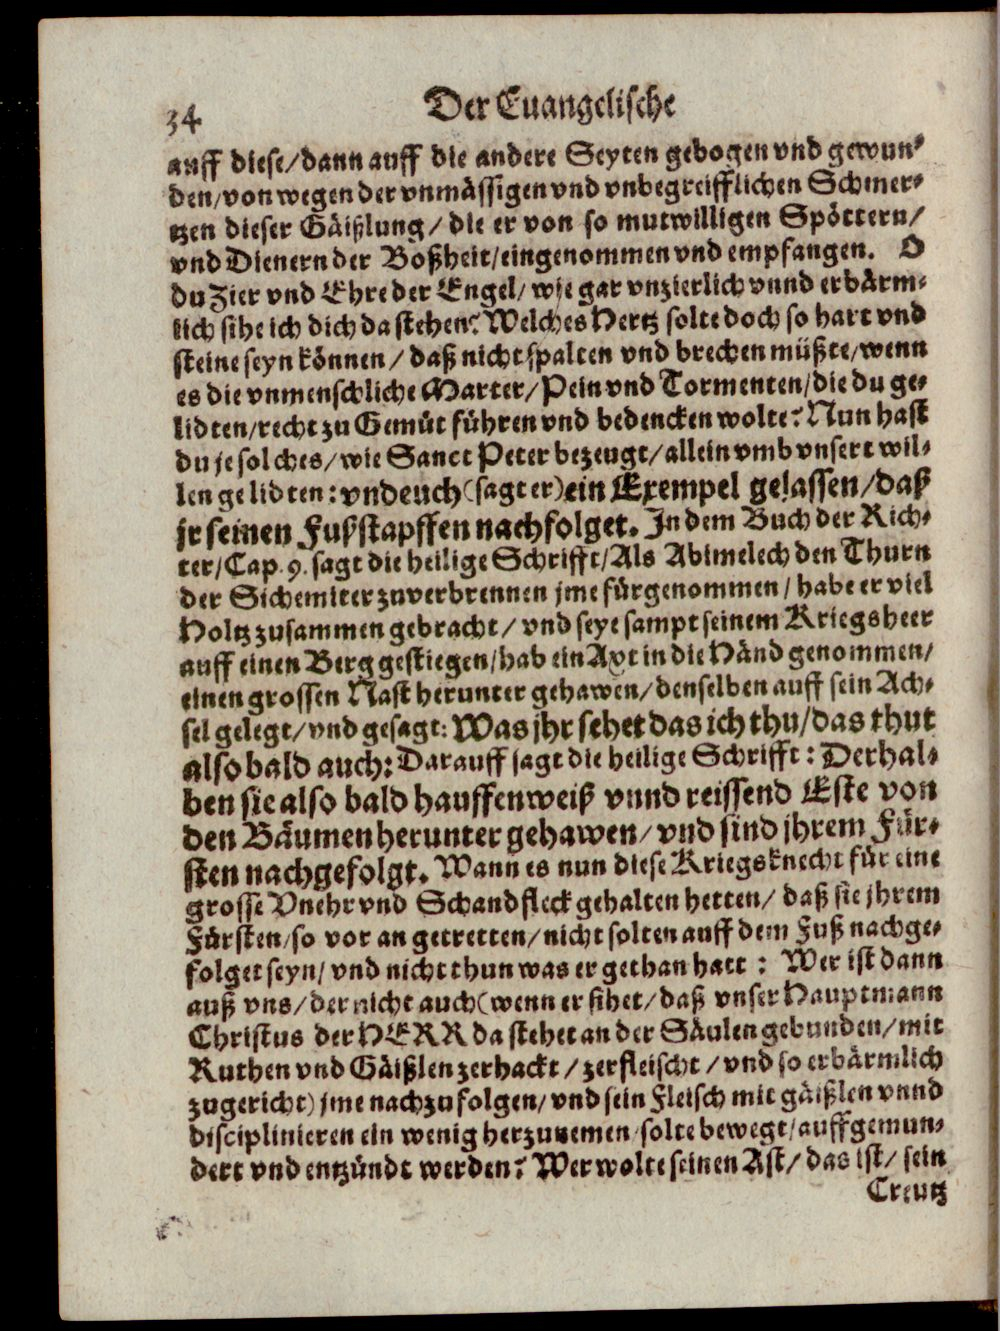 34 Der Euangelische
auff diese/dann auff die andere Seyten gebogen vnd gewun-
den/von wegen der vnmässigen vnd vnbegreifflichen Schmer-
tzen dieser Gäißlung/die er von so mutwilligen Spöttern/
vnd Dienern der Boßheit/eingenommen vnd empfangen. O
du Zier vnd Ehre der Engel/wie gar vnzierlich vnnd erbärm-
lich sihe ich dich da stehen? Welches Hertz solte doch so hart vnd
steine seyn können/daß nicht spalten vnd brechen müßte/wenn
es die vnmenschliche Marter/Pein vnd Tormenten/die du ge-
lidten/recht zu Gemüt führen vnd bedencken wolte? Nun hast
du je solches/wie Sanct Peter bezeugt/allein vmb vnsert wil-
len gelidten: vnd euch (sagt er) ein Exempel gelassen/daß
jr seinen Fußstapffen nachfolget. In dem Buch der Rich-
ter/Cap. 9. sagt die heilige Schrifft/Als Abimelech den Thurn
der Sichemiter zuverbrennen jme fürgenommen/habe er viel
Holtz zusammen gebracht/vnd seye sampt seinem Kriegsheer
auff einen Berg gestiegen/hab ein Axt in die Händ genommen/
einen grossen Nast herunter gehawen/denselben auff sein Ach-
sel gelegt/vnd gesagt: Was jhr sehet das ich thu/das thut
also bald auch: Darauff sagt die heilige Schrifft: Derhal-
ben sie also bald hauffenweiß vnnd reissend Este von
den Bäumen herunter gehawen/vnd sind jhrem Für-
sten nachgefolgt. Wann es nun diese Kriegsknecht für eine
grosse Vnehr vnd Schandfleck gehalten hetten/daß sie jhrem
Fürsten/so vor an getretten/nicht solten auff dem Fuß nachge-
folget seyn/vnd nicht thun was er gethan hatt: Wer ist dann
auß vns/der nicht auch (wenn er sihet/daß vnser Hauptmann
Christus der HERR da stehet an der Säulen gebunden/mit
Ruthen vnd Gäißlen zerhackt/zerfleischt/vnd so erbärmlich
zugericht) jme nachzufolgen/vnd sein Fleisch mit gäißlen vnnd
disciplinieren ein wenig herzunemen/solte bewegt/auffgemun-
dert vnd entzündt werden? Wer wolte seinen Ast/das ist/sein
Creutz